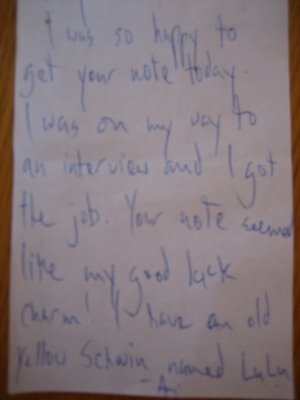 I was so happy to
get your note today.
I was on my way to
an interview and I got
the job. Your note seemed
like my good luck
charm! I have an old
yellow Schwin named LuLu.
- Ari